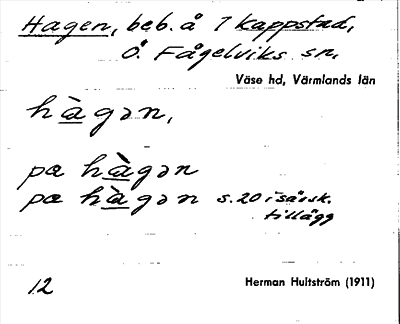 Hagen, beb. å 1 Kappstad,
Ö. Fågelviks sn,
Väse hd, Värmlands län
hàgən,
pæ hàgən
pæ hàgən s. 20 i särsk.
tillägg
12
Herman Hultström (1911)